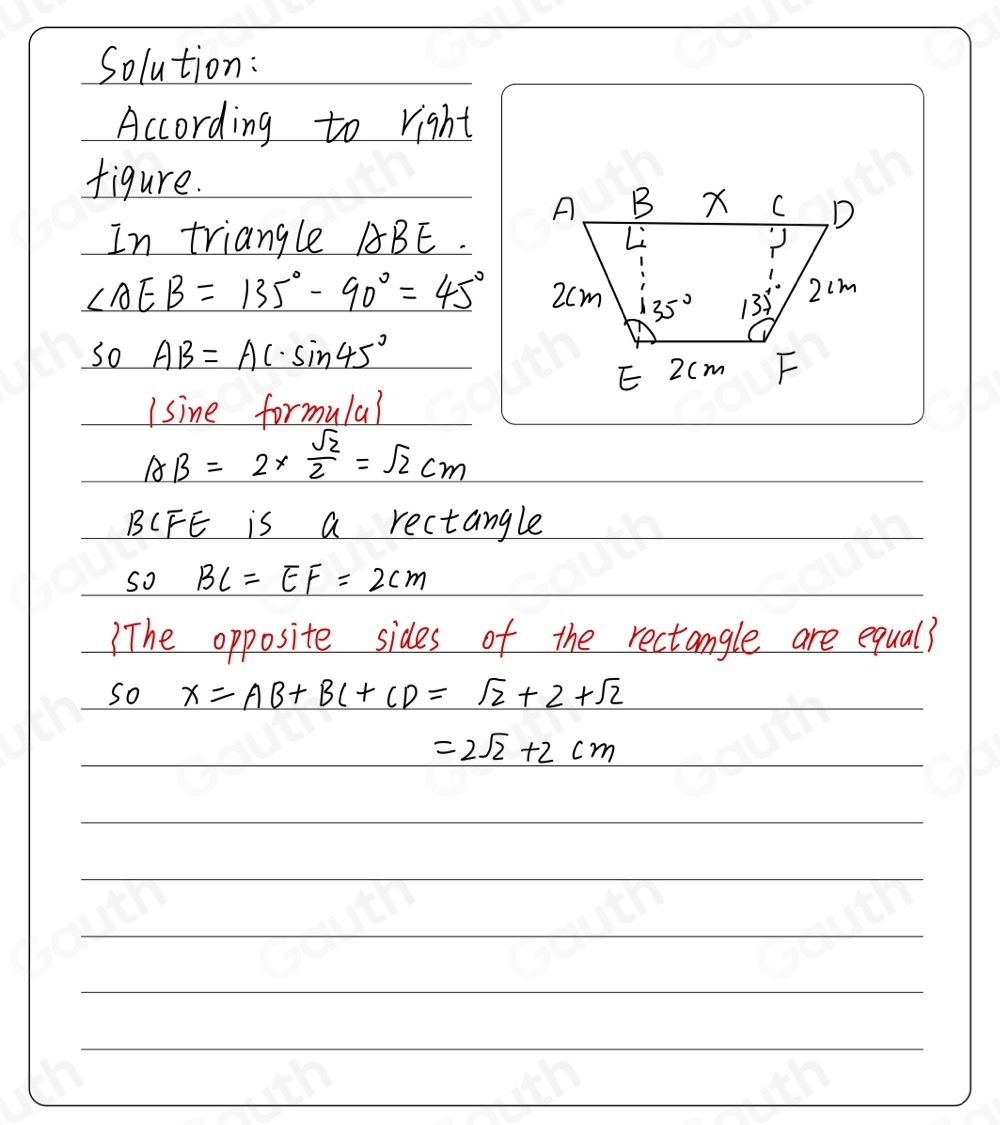 Solution:
According to right
figure.
In triangle ABE.
∠AEB = 135° - 90° = 45°
so AB = AC·sin45°
{sine formula}
AB = 2 × √2/2 = √2 cm
BCFE is a rectangle
so BC = EF = 2cm
{The opposite sides of the rectangle are equal}
so x = AB + BC + CD = √2 + 2 + √2
= 2√2 + 2 cm
A B x C D
2cm 135° 135° 2cm
E 2cm F
Gauth